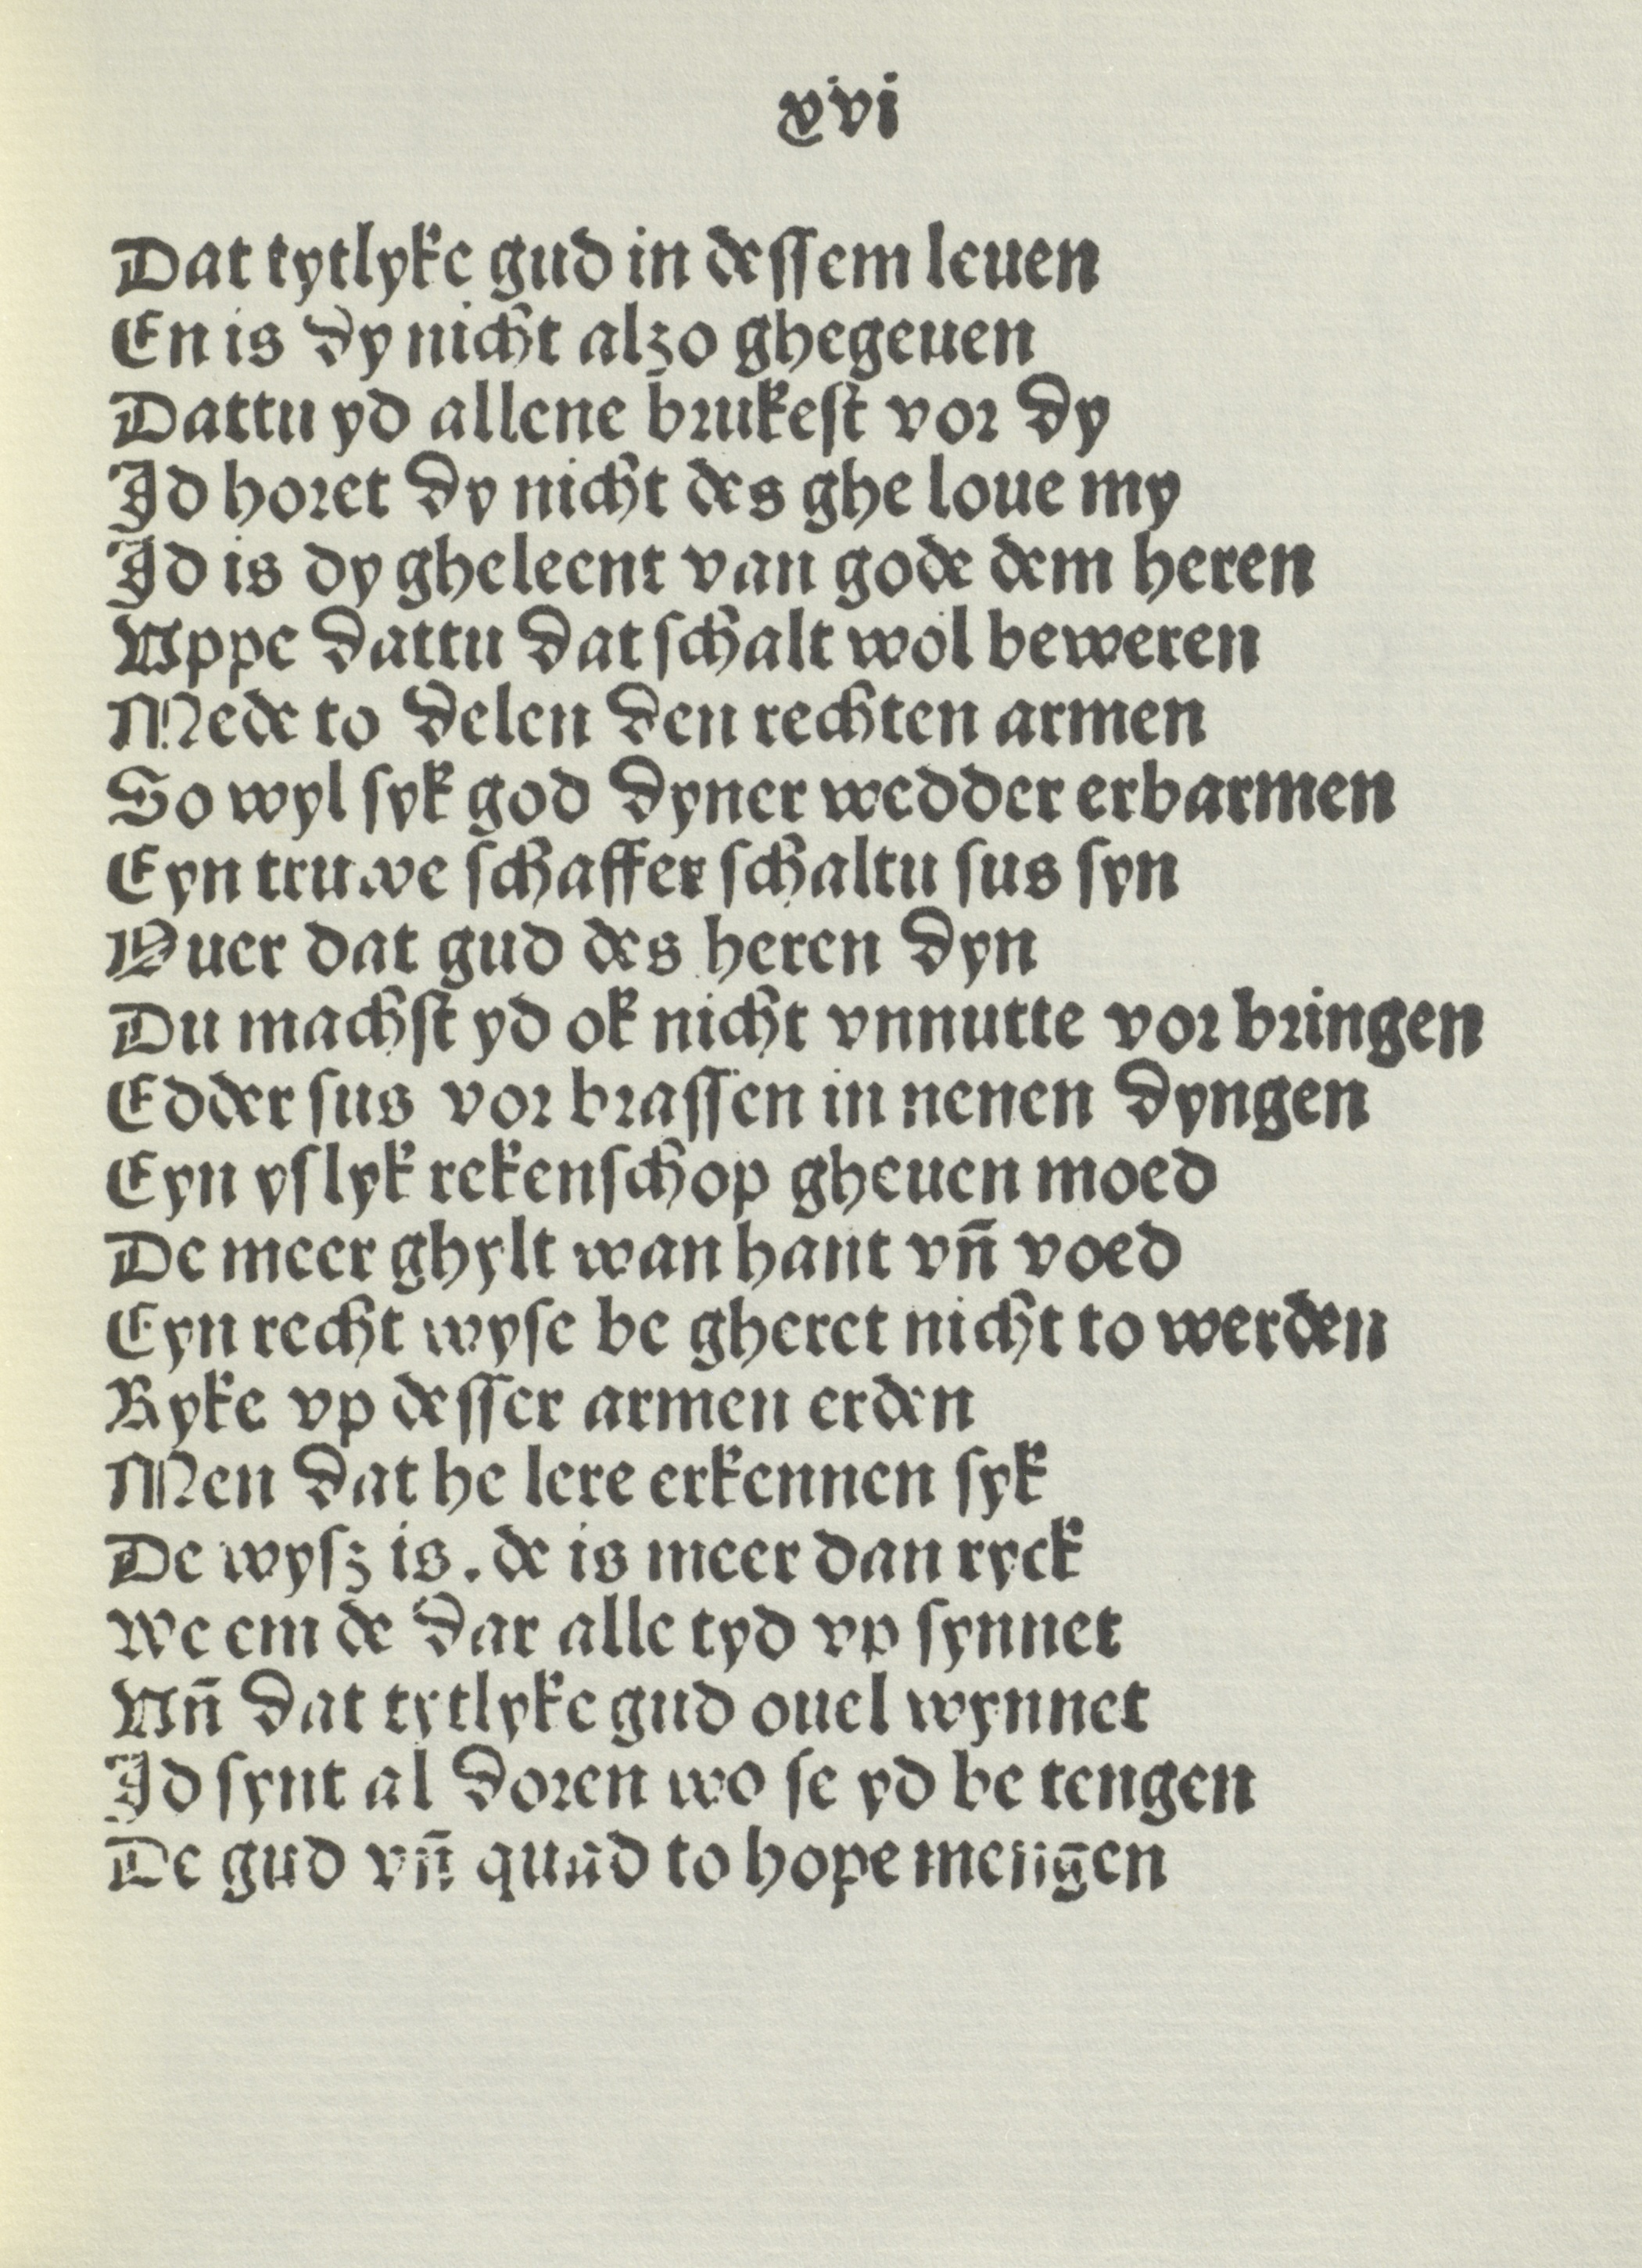 xvi
Dat tytlyke gud in dessem leuen
En is dy nicht alzo ghegeuen
Dattu yd allene brukest vor dy
Jd horet dy nicht des ghe loue my
Jd is dy gheleent van gode dem heren
Vppe dattu dat schalt wol beweren
Mede to delen den rechten armen
So wyl syk god dyner wedder erbarmen
Eyn truwe schaffer schaltu sus syn
Ouer dat gud des heren dyn
Du machst yd ok nicht vnnutte vor bringen
Edder sus vor brassen in nenen dyngen
Eyn yslyk rekenschop gheuen moed
De meer ghylt wan hant vn̄ voed
Eyn recht wyse be gheret nicht to werden
Ryke vp desser armen erden
Men dat he lere erkennen syk
De wysz is. de is meer dan ryck
We em de dar alle tyd vp synnet
Vn̄ dat tytlyke gud ouel wynnet
Jd synt al doren wo se yd be tengen
De gud vn̄ quad to hope mengen